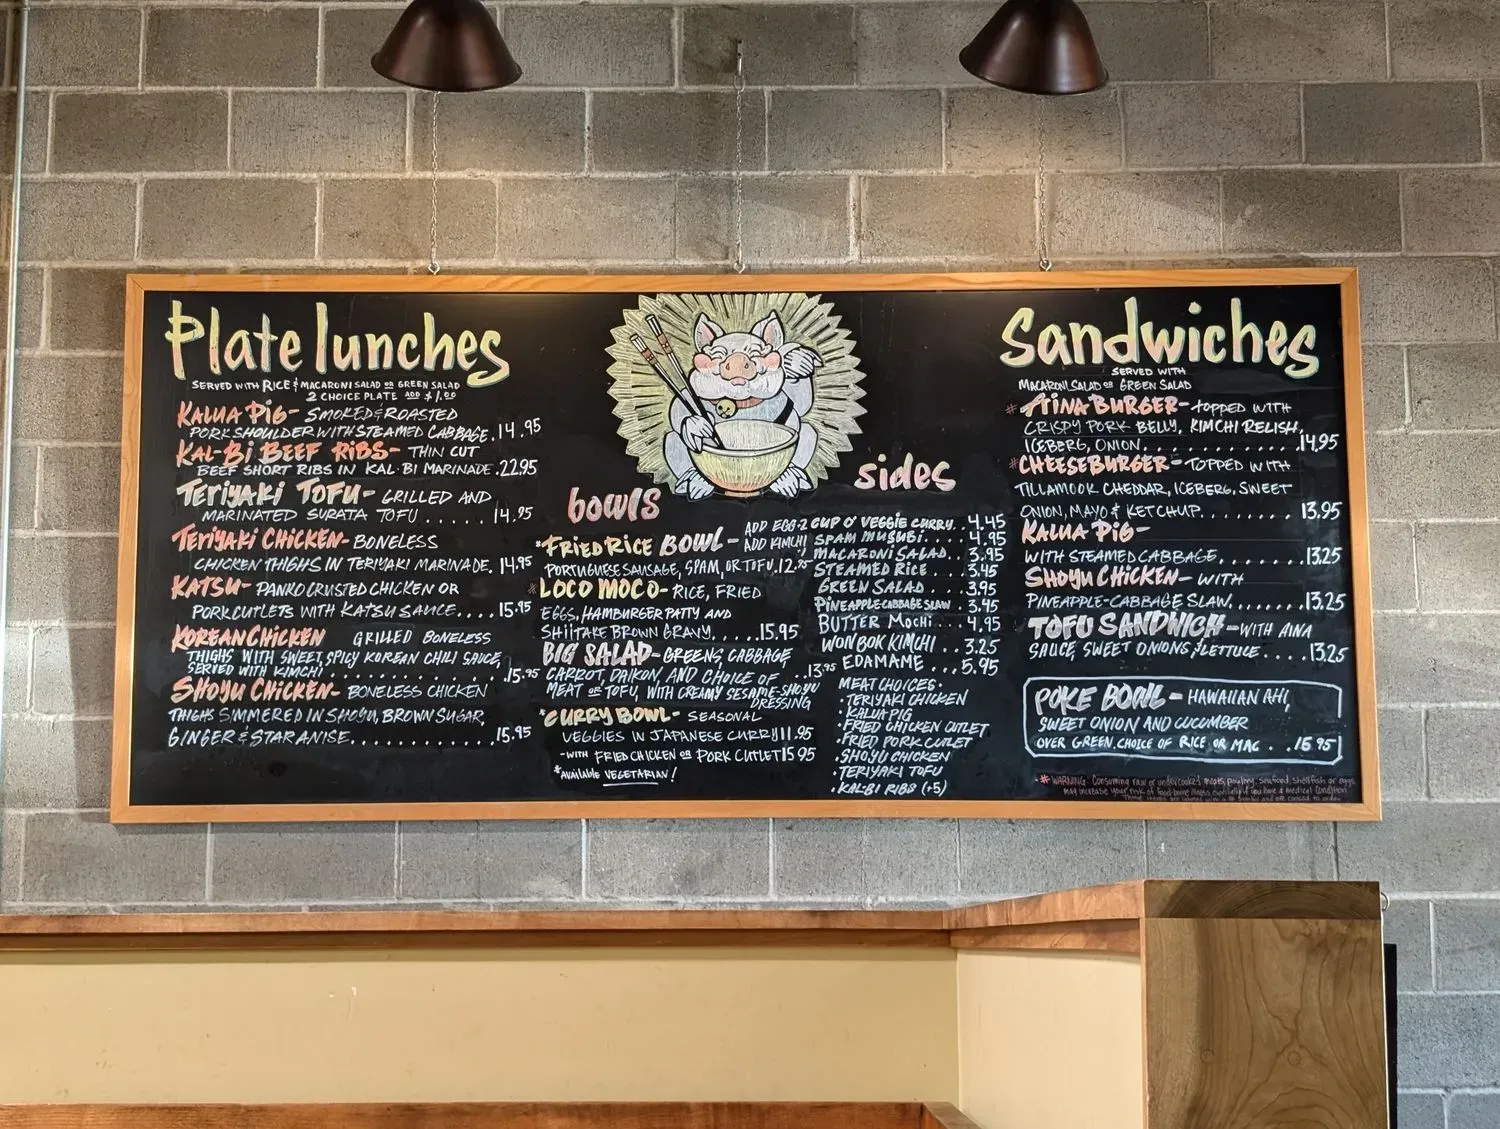 Plate lunches
SERVED WITH RICE & MACARONI SALAD OR GREEN SALAD
2 CHOICE PLATE ADD $1.00
KALUA PIG- SMOKED & ROASTED
PORK SHOULDER WITH STEAMED CABBAGE. 14.95
KAL-BI BEEF RIBS- THIN CUT
BEEF SHORT RIBS IN KAL BI MARINADE. 22.95
TERIYAKI TOFU- GRILLED AND
MARINATED SURATA TOFU ..... 14.95
TERIYAKI CHICKEN- BONELESS
CHICKEN THIGHS IN TERIYAKI MARINADE. 14.95
KATSU- PANKO CRUSTED CHICKEN OR
PORK CUTLETS WITH KATSU SAUCE.... 15.95
KOREAN CHICKEN GRILLED BONELESS
THIGHS WITH SWEET, SPICY KOREAN CHILI SAUCE,
SERVED WITH KIMCHI .......... 15.95
SHOYU CHICKEN- BONELESS CHICKEN
THIGHS SIMMERED IN SHOYU, BROWN SUGAR,
GINGER & STAR ANISE............ 15.95
bowls
*FRIED RICE BOWL- ADD EGG-2
ADD KIMCHI
PORTUGUESE SAUSAGE, SPAM, OR TOFU. 12.95
LOCO MOCO- RICE, FRIED
EGGS, HAMBURGER PATTY AND
SHIITAKE BROWN GRAVY..... 15.95
BIG SALAD- GREENS, CABBAGE
CARROT, DAIKON, AND CHOICE OF ..13.95
MEAT OR TOFU, WITH CREAMY SESAME-SHOYU
DRESSING
*CURRY BOWL- SEASONAL
VEGGIES IN JAPANESE CURRY 11.95
-WITH FRIED CHICKEN OR PORK CUTLET 15.95
*Available VEGETARIAN!
sides
CUP O' VEGGIE CURRY.. 4.45
SPAM MUSUBI.... 4.95
MACARONI SALAD.. 3.95
STEAMED RICE ... 3.45
GREEN SALAD ... 3.95
PINEAPPLE-CABBAGE SLAW 3.45
BUTTER MOCHI .... 4.95
WON BOK KIMCHI .. 3.25
EDAMAME ... 5.95
MEAT CHOICES:
• TERIYAKI CHICKEN
• KALUA PIG
• FRIED CHICKEN CUTLET
• FRIED PORK CUTLET
• SHOYU CHICKEN
• TERIYAKI TOFU
• KAL-BI RIBS (+5)
Sandwiches
SERVED WITH
MACARONI SALAD OR GREEN SALAD
BURGER- TOPPED WITH
CRISPY PORK BELLY, KIMCHI RELISH,
ICEBERG, ONION............... 14.95
*CHEESEBURGER- TOPPED WITH
TILLAMOOK CHEDDAR, ICEBERG, SWEET
ONION, MAYO & KETCHUP......... 13.95
KALUA PIG-
WITH STEAMED CABBAGE......... 13.25
SHOYU CHICKEN- WITH
PINEAPPLE-CABBAGE SLAW....... 13.25
TOFU SANDWICH- WITH AINA
SAUCE, SWEET ONIONS, & LETTUCE..... 13.25
POKE BOWL- HAWAIIAN AHI,
SWEET ONION AND CUCUMBER
OVER GREEN, CHOICE OF RICE OR MAC .. 15.95
* WARNING: Consuming raw or undercooked meats, poultry, seafood, shellfish or eggs
may increase your risk of food-borne illness, especially if you have a medical condition